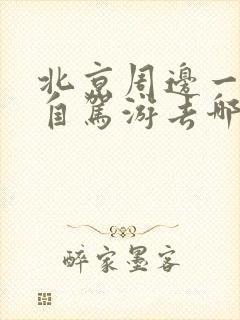 北京周邊一
自駕游去哪
醉家墨客